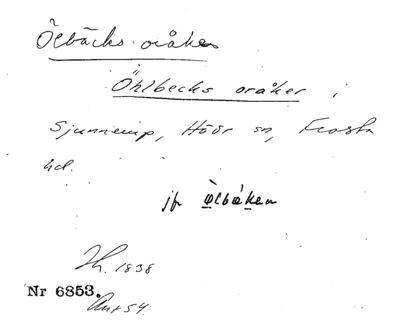 Ölbäcks oråken
Öhlbecks oråker i
Sjunnerup, Höör sn, Frosta
hd.
jfr ølbäken
Jh. 1838
Nr 6853.
Avr 54.